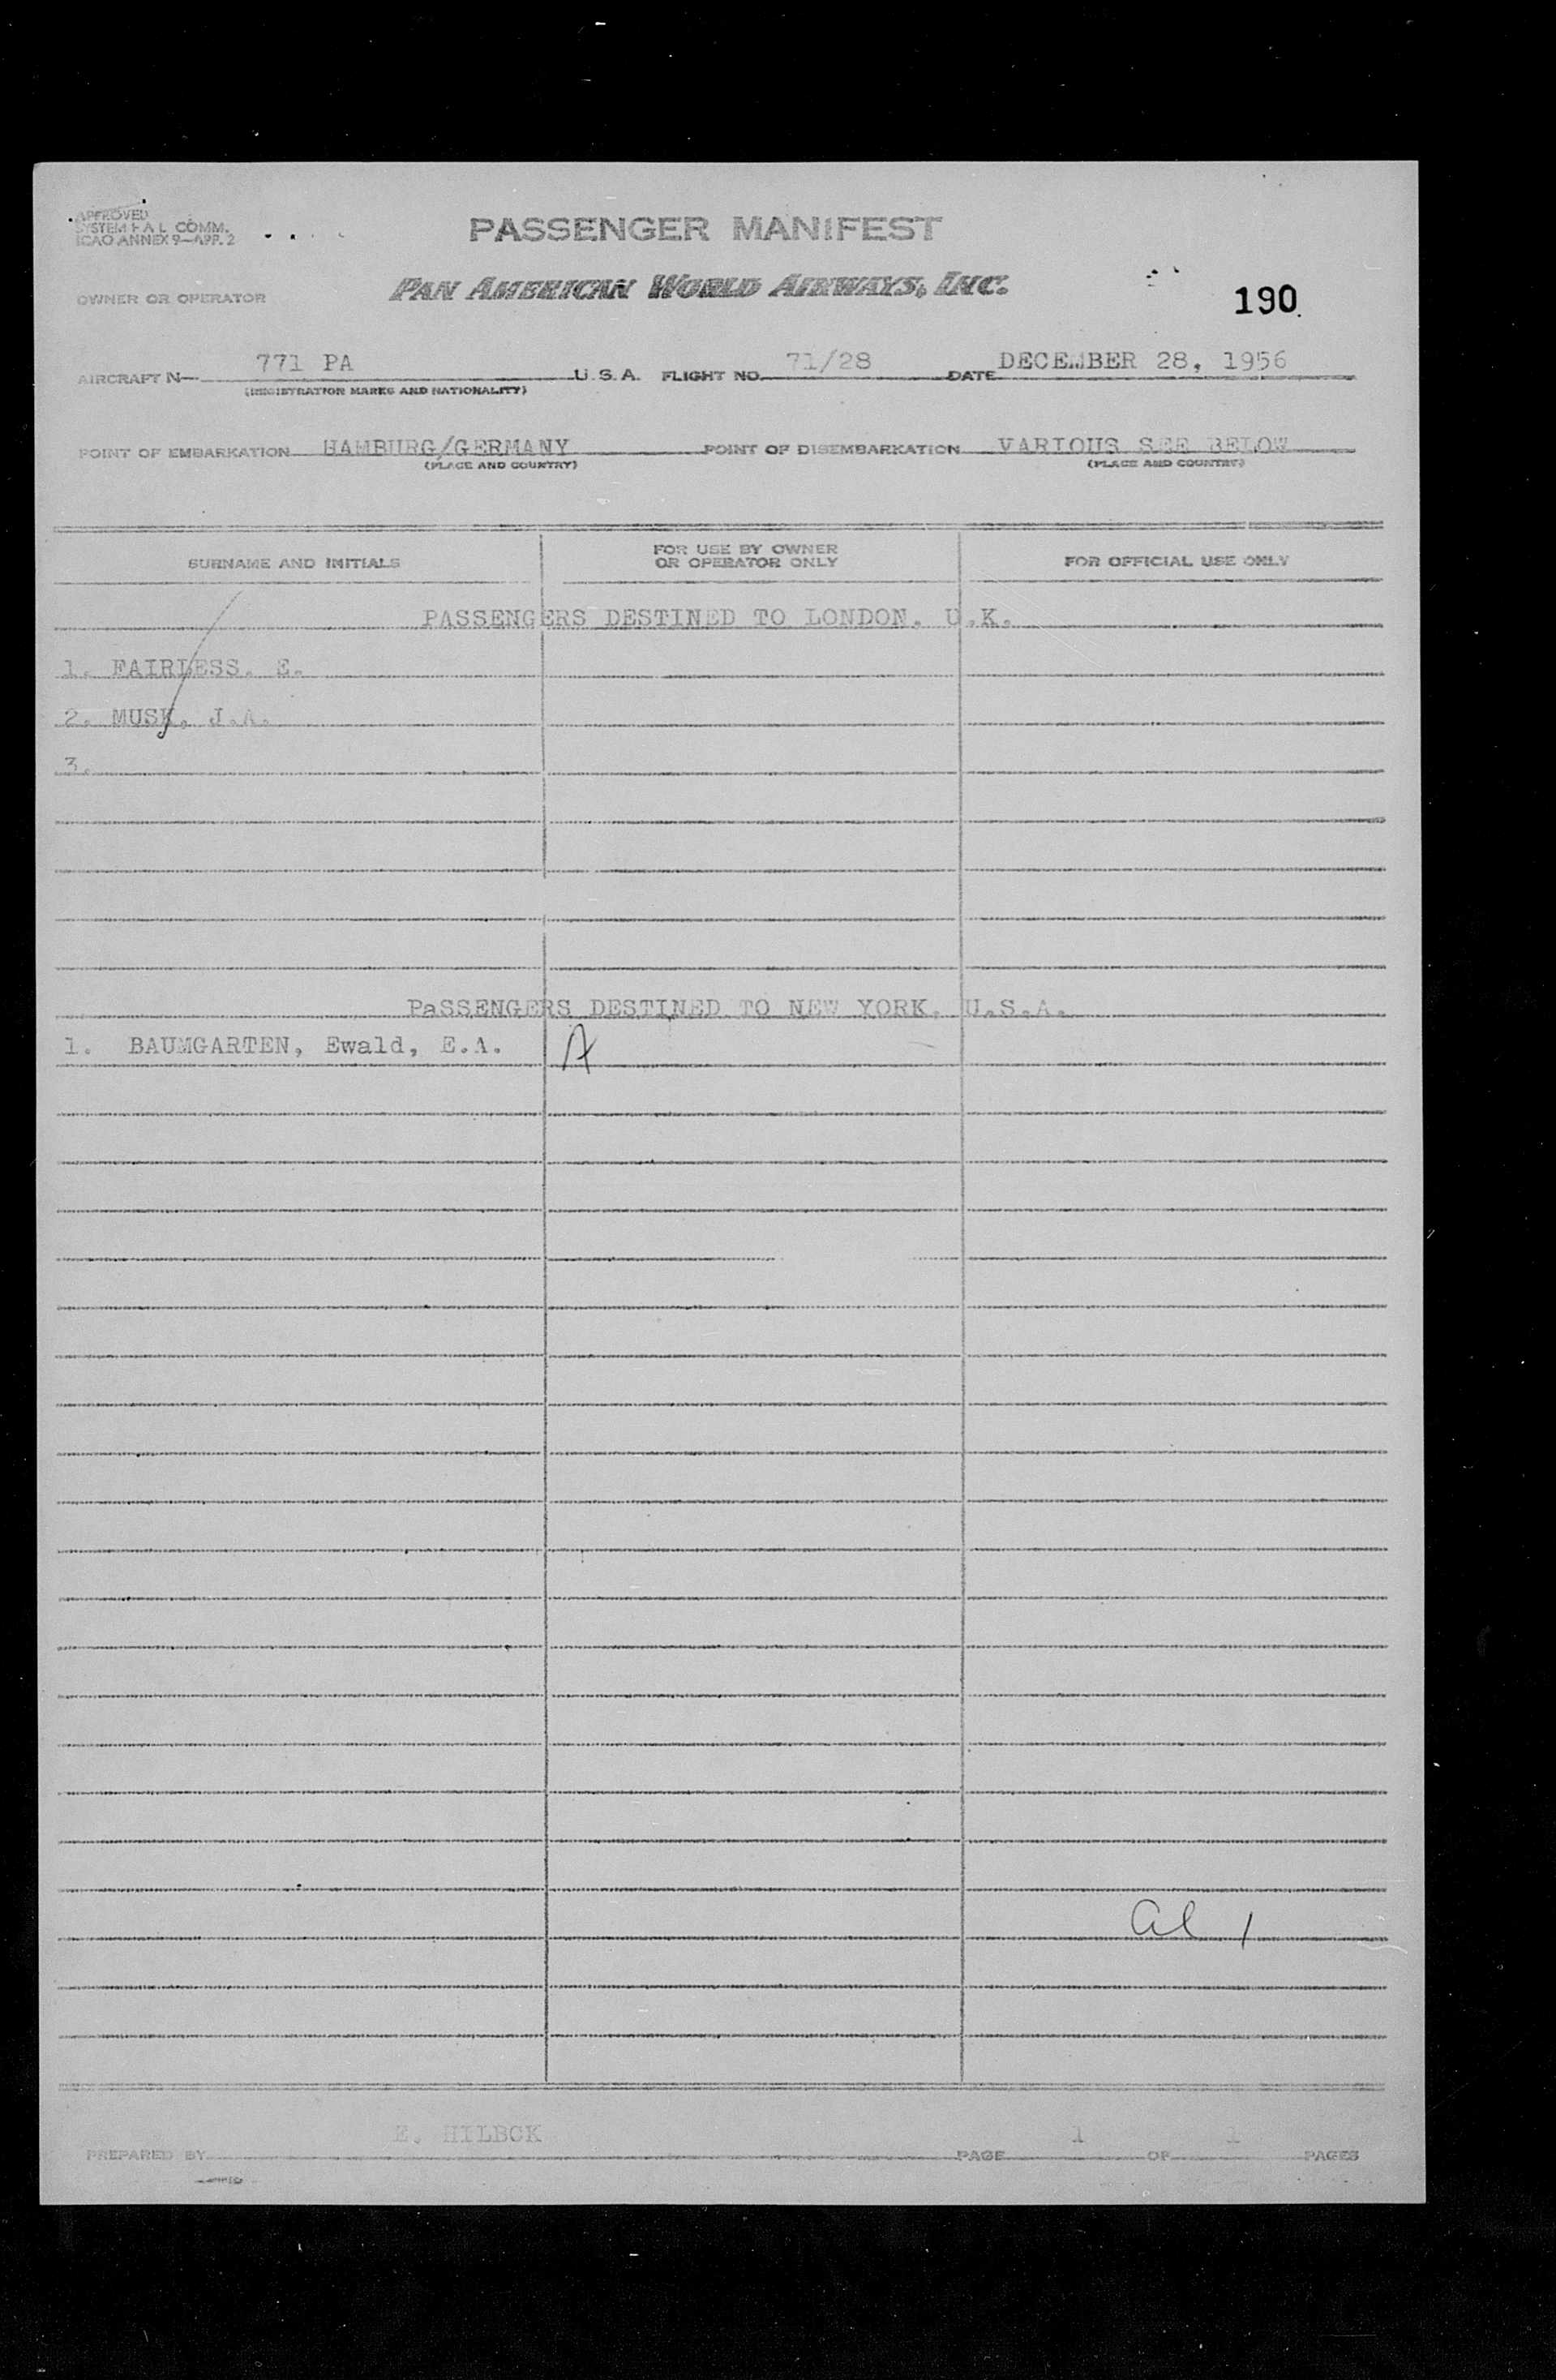 APPROVED
SYSTEM F A L COMM.
ICAO ANNEX 9—APP. 2
PASSENGER MANIFEST
OWNER OR OPERATOR
PAN AMERICAN WORLD AIRWAYS, INC.
190
AIRCRAFT N— 771 PA U.S.A. FLIGHT NO. 71/28 DATE DECEMBER 28, 1956
(REGISTRATION MARKS AND NATIONALITY)
POINT OF EMBARKATION HAMBURG/GERMANY POINT OF DISEMBARKATION VARIOUS SEE BELOW
(PLACE AND COUNTRY) (PLACE AND COUNTRY)
SURNAME AND INITIALS FOR USE BY OWNER OR OPERATOR ONLY FOR OFFICIAL USE ONLY
PASSENGERS DESTINED TO LONDON. U.K.
1. FAIRLESS. E.
2. MUSK, J.A.
3.
PaSSENGERS DESTINED TO NEW YORK. U.S.A.
1. BAUMGARTEN, Ewald, E.A. A
al 1
PREPARED BY E. HILBCK PAGE 1 OF 1 PAGES